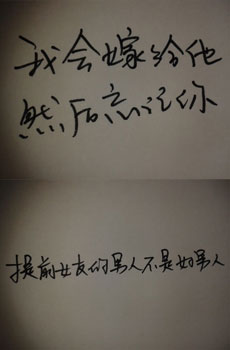 我会嫁给他
然后忘记你
提前女友的男人不是好男人